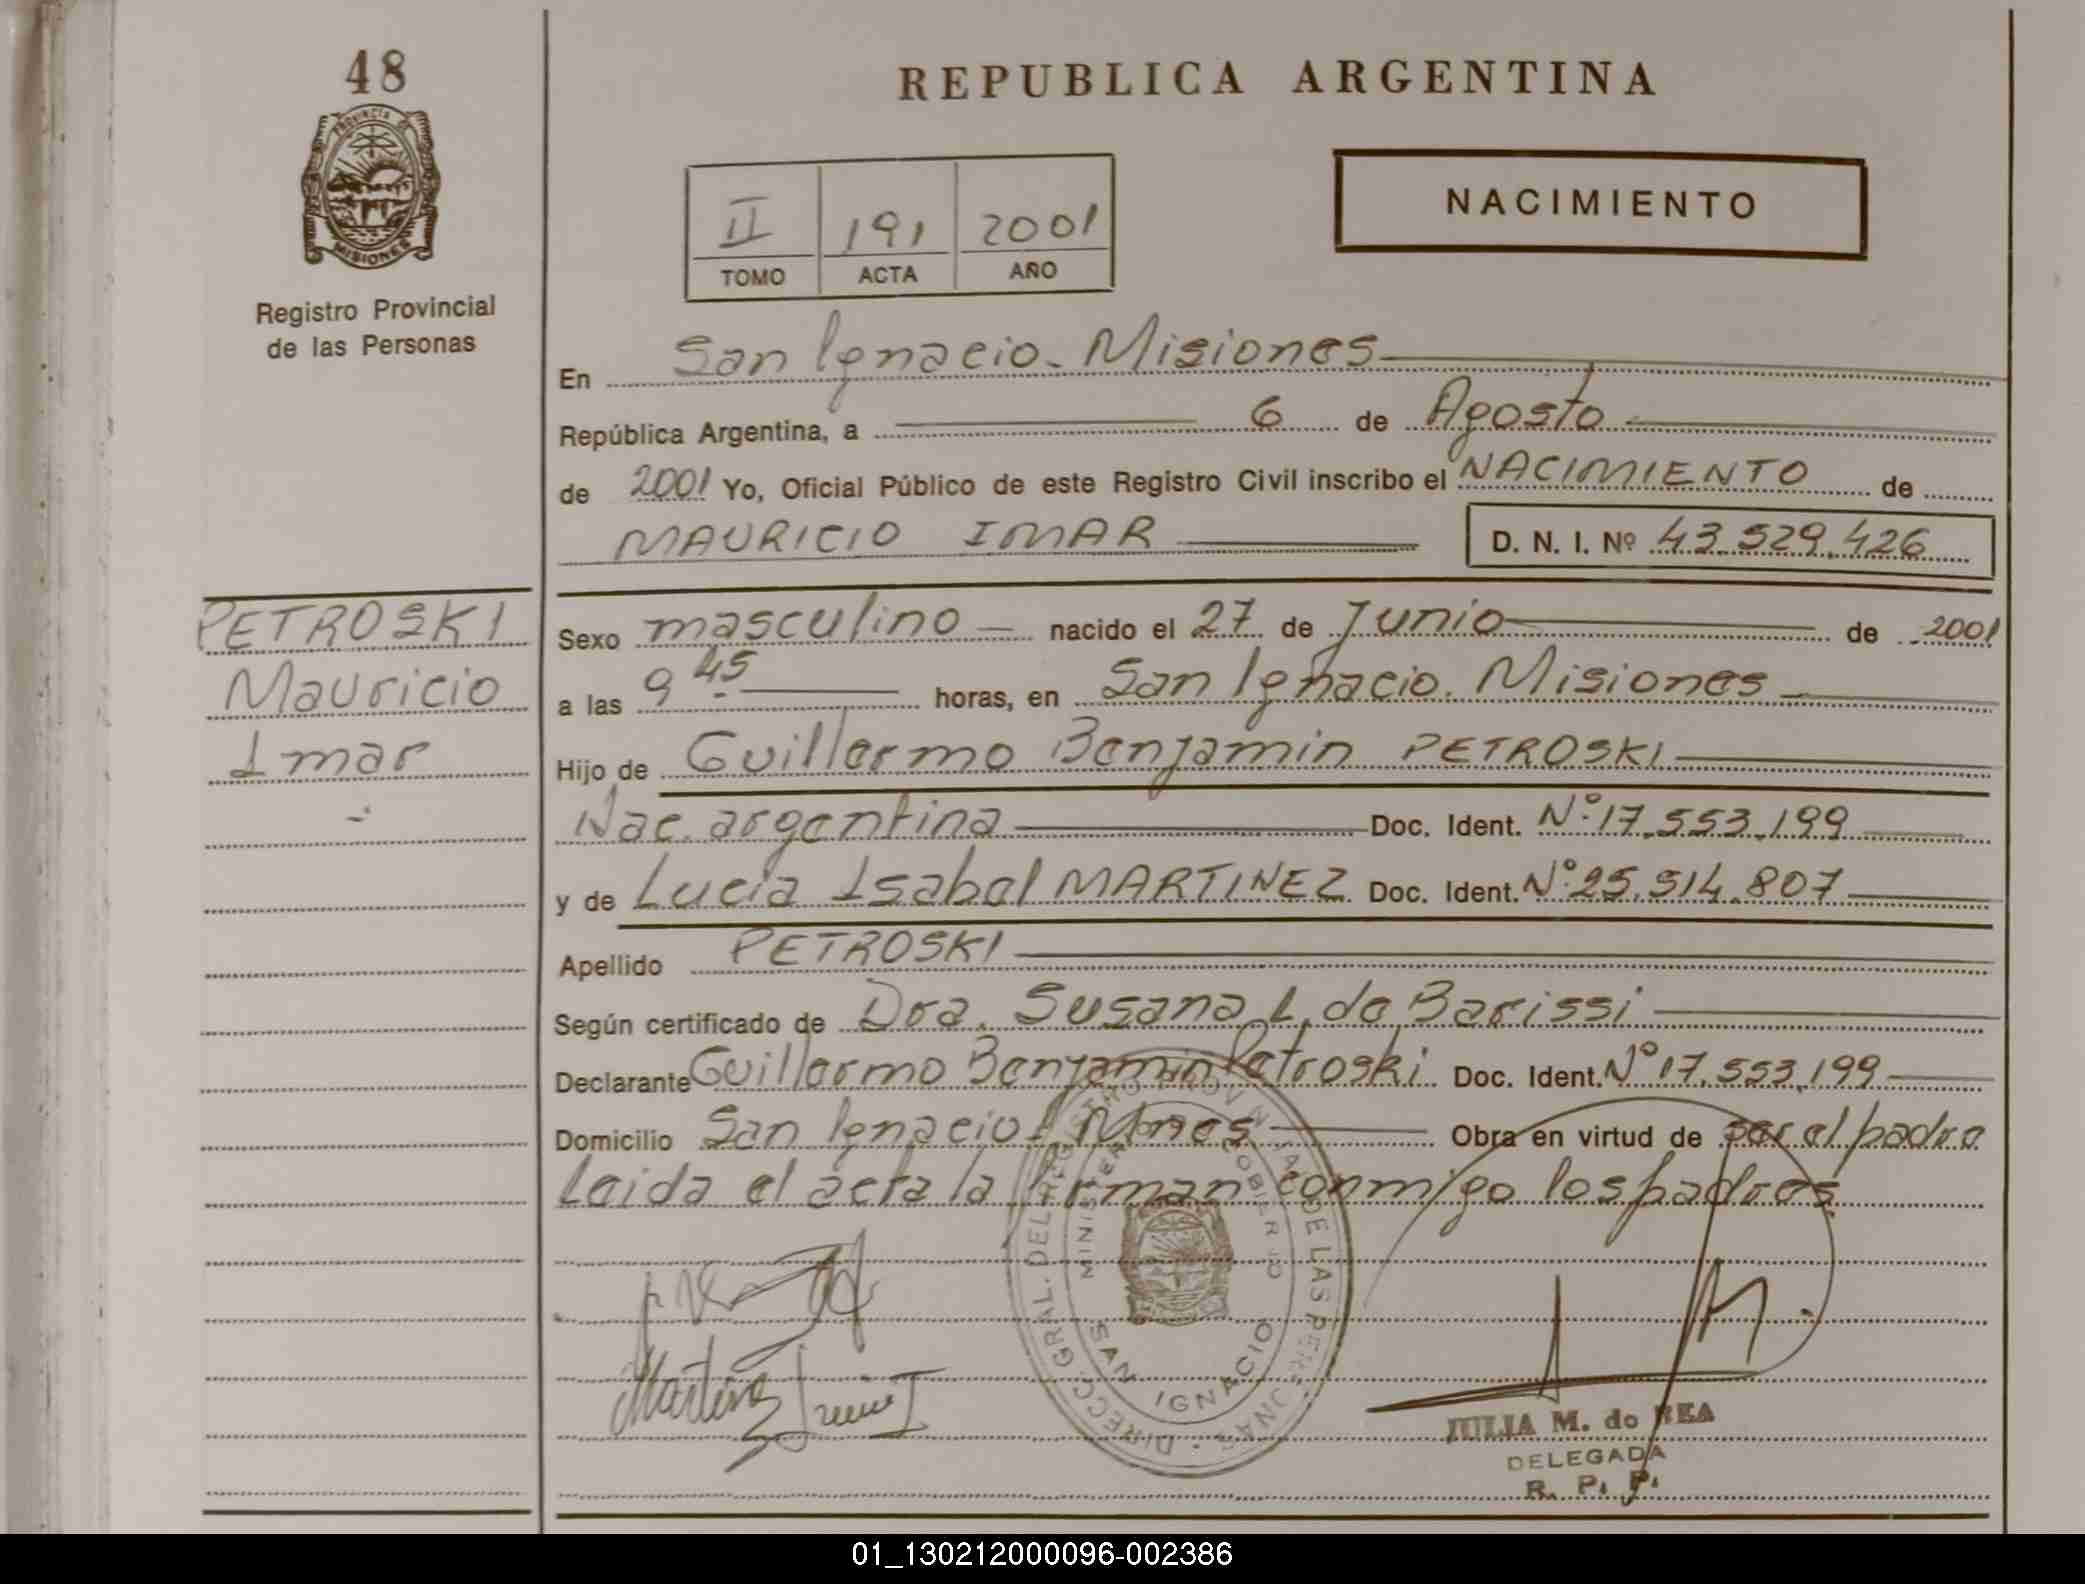 48
PROVINCIA DE
MISIONES
Registro Provincial
de las Personas
PETROSKI
Mauricio
Imar
REPUBLICA ARGENTINA
II 191 2001
TOMO ACTA AÑO
NACIMIENTO
En San Ignacio - Misiones
República Argentina, a 6 de Agosto
de 2001 Yo, Oficial Público de este Registro Civil inscribo el NACIMIENTO de
MAURICIO IMAR D. N. I. Nº 43.529.426
Sexo masculino nacido el 27 de Junio de 2001
a las 9 45 horas, en San Ignacio. Misiones
Hijo de Guillermo Benjamin PETROSKI
Nac. argentina Doc. Ident. Nº 17.553.199
y de Lucia Isabel MARTINEZ Doc. Ident. Nº 25.514.807
Apellido PETROSKI
Según certificado de Dra. Susana L. de Barissi
Declarante Guillermo Benjamin Petroski Doc. Ident. Nº 17.553.199
Domicilio San Ignacio Mnes Obra en virtud de ser el padre
Leida el acta la firman conmigo los padres.
DIRECC. GRAL. DEL REGISTRO PROV. DE LAS PERSONAS
MINISTERIO GOBIERNO
SAN IGNACIO
Martinez Lucia I
JULIA M. de REA
DELEGADA
R. P. P.
01_130212000096-002386